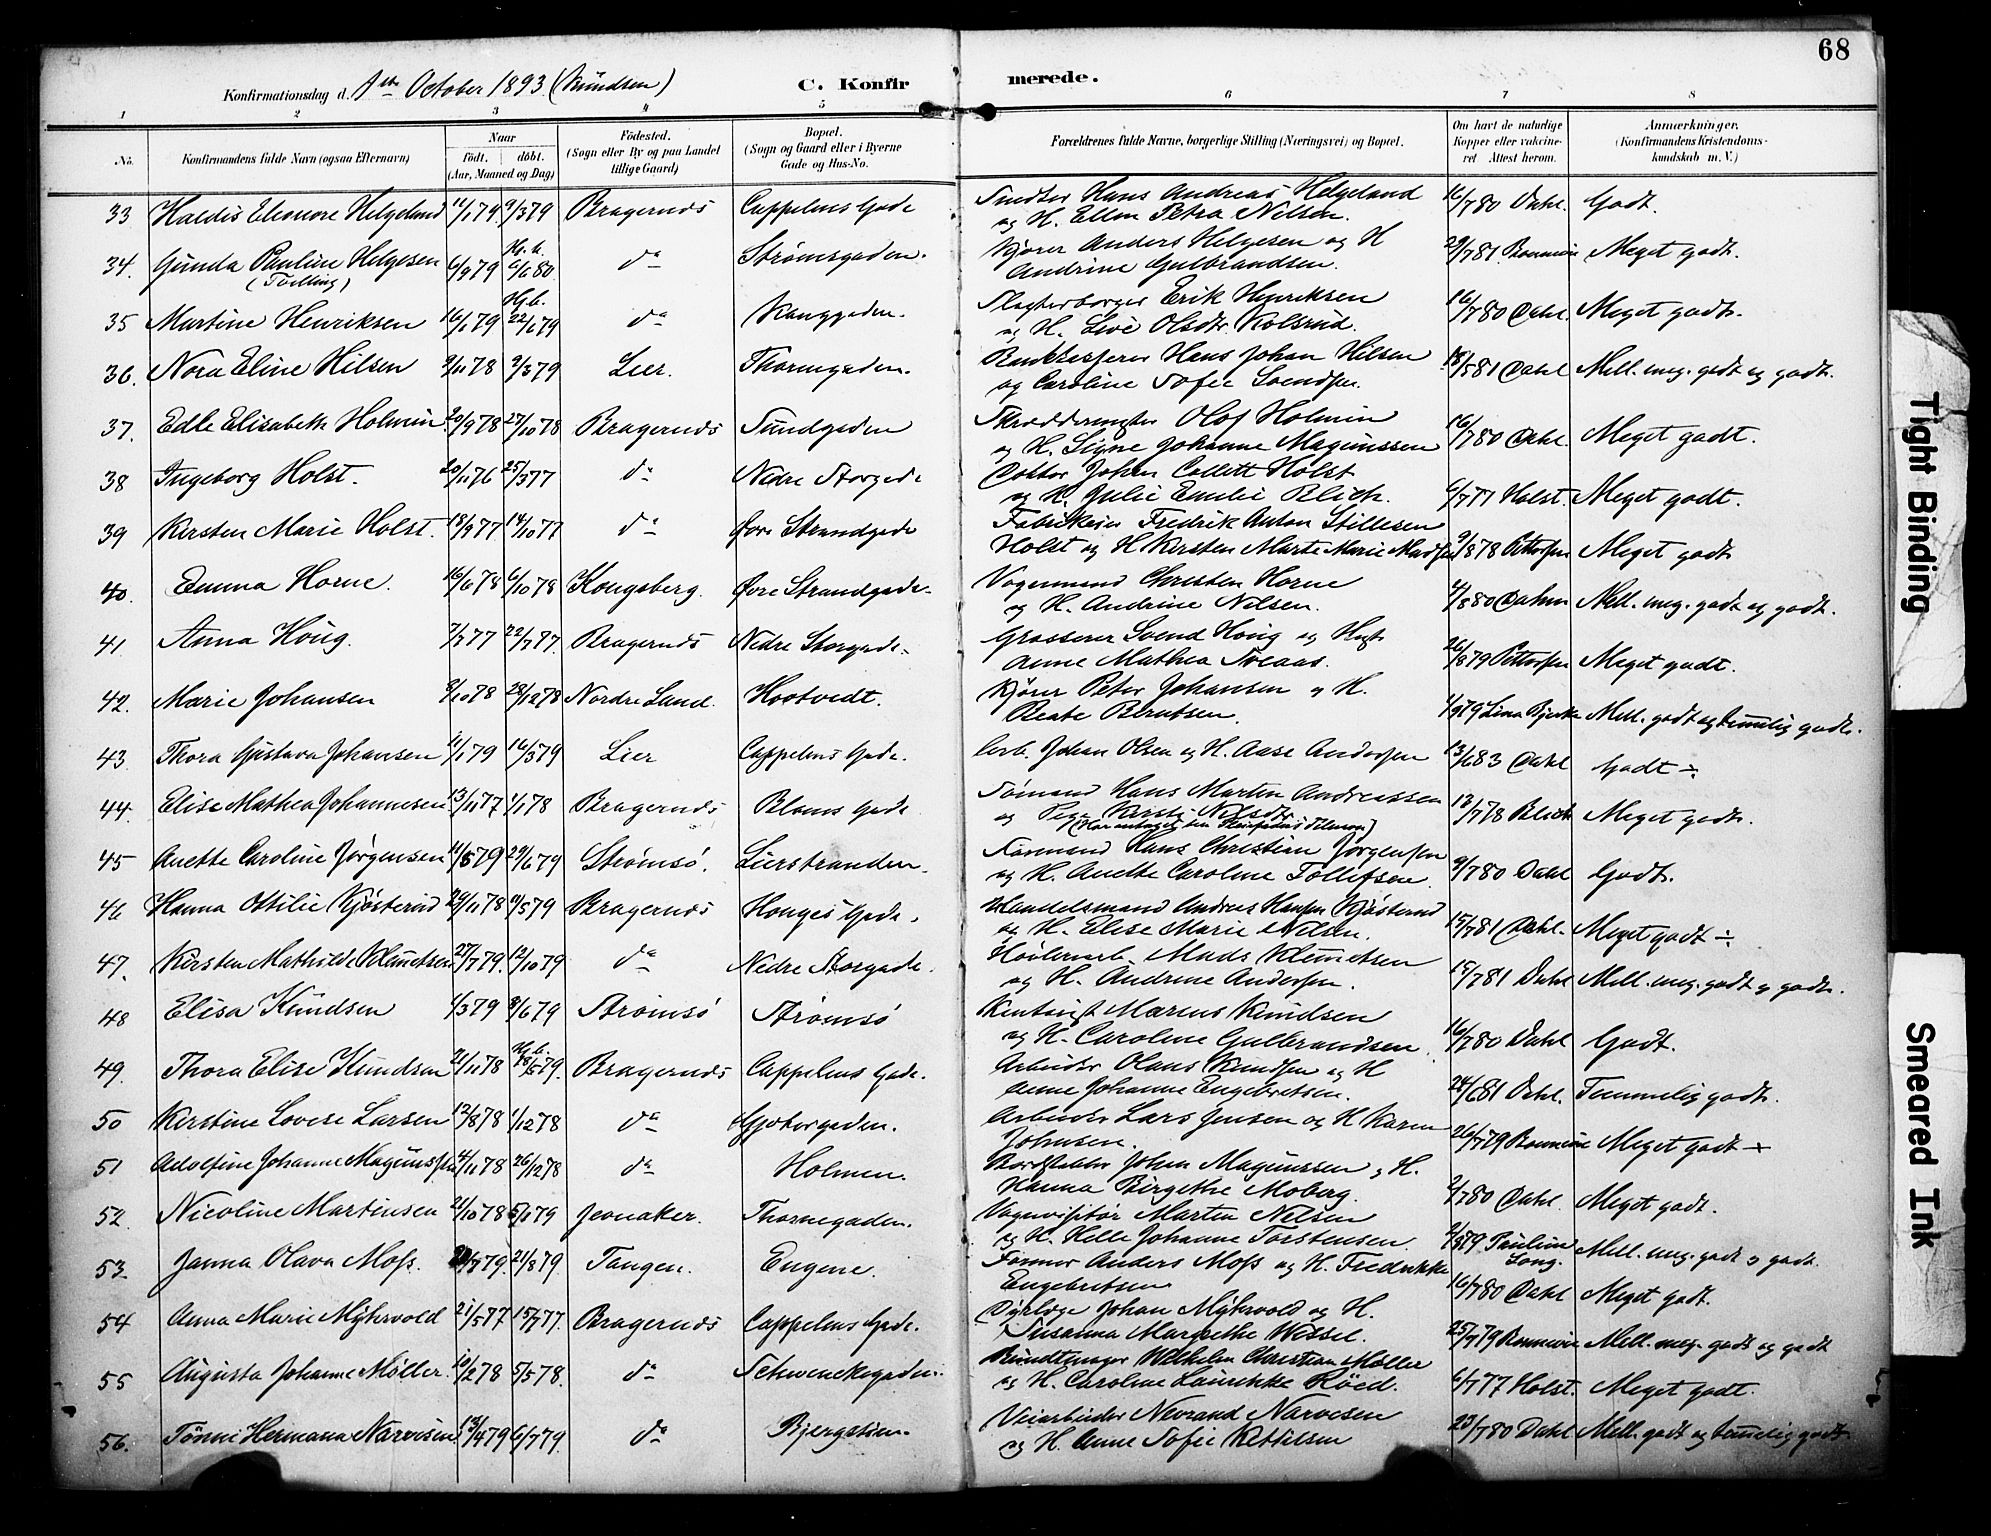 68
Konfirmationsdag d. 1ste October 1893 (Knudsen)
C. Konfirmerede.
1 2 3 4 5 6 7 8
No. Konfirmandens fulde Navn (ogsaa Efternavn) Naar født. døbt. (Aar, Maaned og Dag) Fødested. (Sogn eller By og paa Landet tillige Gaard) Bopæl. (Sogn og Gaard eller i Byerne Gade og Hus-No. Forældrenes fulde Navne, borgerlige Stilling (Næringsvei) og Bopæl. Om havt de naturlige Kopper eller vakcineret Attest herom. Anmærkninger. (Konfirmandens Kristendomskundskab m. V.)
33 Haldis Eleonore Helgeland 11/1 79. 9/3 79 Bragernes Cappelens Gade Hans Andreas Helgeland og H. Ellen Petra Nilsen. 16/7 80 Dahl. Godt.
34. Gunda Pauline Helgesen (Tvilling) 6/9 79 Hj. d. 6/6 80 do Strømsgaden. Kjører Anders Helgesen og H Andrine Gulbrandsen. 29/7 81 Meget godt.
35 Martine Henriksen 16/1 79 Hj. d. 22/1 79 do Konggaden. Slagterborger Erik Henriksen og H. Live Olsdtr. Kolsrud. 16/7 80 Dahl. Meget godt.
36. Nora Eline Hilsen 9/11 78 9/3 79 Lier. Thornegaden. Bankkasserer Hans Johan Hilsen og Caroline Sofie Svendsen. 18/5 81 Dahl Mell. meg. godt og godt.
37. Edle Elisabeth Holmin 20/9 78 27/10 78 Bragernes Sundgaden Skreddermester Olof Holmin og H. Signe Johanne Magnussen 16/7 80 Dahl. Meget godt.
38 Ingeborg Holst. 20/11 76 25/3 77 do Nedre Storgade Doktor Johan Collett Holst og H. Julie Emilie Blich. 6/7 77 Holst. Meget godt.
39 Kirsten Marie Holst. 18/9 77 14/10 77 do Øvre Strandgade Fabrikeier Fredrik Anton Stillesen Holst og H Kirsten Marte Marie Madsen 9/8 78 Pettersen Meget godt
40. Emma Horne. 16/6 78 6/10 78 Kongsberg. Øvre Strandgade. Vognmand Christen Horne og H. Andrine Nilsen. 4/8 80 Dahm Mell. meg. godt og godt.
41 Anna Houg. 7/7 77 22/7 77. Bragernes Nedre Storgade. Grosserer Svend Houg og Hust Anne Mathea Sveaas. 26/8 79 Pettersen Meget godt.
42. Marie Johansen 8/10 78 28/12 78 Nordre Land. Hootvedt. Kjører Peter Johansen og H. Beate Berntsen. 1/9 79 Lina Bjerke Mell. godt og temmelig godt.
43. Thora Gustava Johansen 11/1 79 16/3 79 Lier Cappelens Gade. Arb. Johan Olsen og H. Aase Andersen 13/6 83 Dahl Godt ÷
44. Elise Mathea Johannesen 13/11 77 1/1 78 Bragernes Bloms Gade Sømand Hans Martin Andreassen og Pige Kirsti Nilsdtr. 12/7 78 Blich Meget godt.
45 Anette Caroline Jørgensen 11/5 79 29/6 79 Strømsø. Lierstranden. Hans Christian Jørgensen og H. Anette Caroline Tollefsen. 9/7 80 Dahl Godt.
46 Hanna Ottilie Kjøsterud 29/11 78 11/5 79 Bragernes Hauges Gade. Handelsmand Andreas Hansen Kjøsterud og H. Elise Marie Nilsen. 15/7 81 Dahl. Meget godt ÷
47. Kirsten Mathilde Klemetsen 27/7 79. 12/10 79 do Nedre Storgade. Høvlerarb. Mads Klemetsen og H. Andrine Andersen. 15/7 81 Dahl Mell. meg. godt og godt.
48 Elisa Knudsen 1/3 79 8/6 79 Strømsø Strømsø Kontorist Marius Knudsen og H. Caroline Gulbrandsen. 16/7 80 Dahl Godt.
49. Thora Elise Knudsen 21/11 78 Hj. d. 18/5 79. Bragernes Cappelens Gade. Arbeider Olaus Knudsen og H Anne Johanne Engebretsen. 24/6 81 Dahl. Temmelig godt.
50 Kirstine Lovise Larsen 12/8 78 1/12 78 do Gjetergaden. Arbeider Lars Jensen og H Karen Johnsen. 26/7 79 Meget godt ÷
51 Adolfine Johanne Magnussen 4/11 78 26/12 78 do Holmen. Bordstabler Johan Magnussen og H. Hanna Birgethe Moberg. 2/7 80 Dahl. Meget godt.
52. Nicoline Martinsen 21/10 78 5/1 79 Jevnaker. Thornegaden. Vognvisitør Martin Nilsen og H. Helle Johanne Torstensen. 2/9 79 Pauline Long. Mell. meg. godt og godt.
53 Janna Olava Moss. 79. 21/8 79 Tangen. Engene. Former Anders Moss og H. Fredrikke Engebretsen 16/7 80 Dahl Meget godt.
54 Anna Marie Myhrvold 21/5 77 15/7 77. Bragernes Cappelens Gade. Dyrlæge Johan Myhrvold og H. Susanna Margrethe Wessel. 25/7 79 Mell. meg. godt og godt
55 Augusta Johanne Møller. 10/2 78 5/5 78. do Schwenckegaden. Wilhelm Christian Møller og H. Caroline Laurikke Røed. 6/7 77 Holst. Meget godt.
56. Tønni Hermana Narvesen 13/4 79 6/7 79 do Bjergstien. Veiarbeider Nevrand Narvesen og H. Anne Sofie Kittilsen 23/7 80 Dahl Mell. godt og temmelig godt.
Tight Binding
Smeared Ink